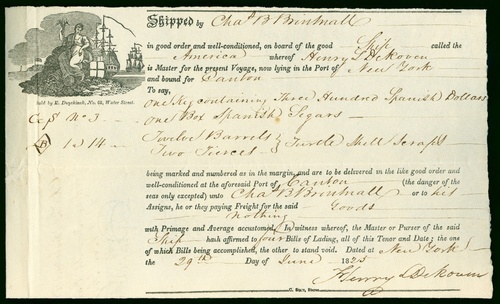 Shipped by Chas B Brintnall
in good order and well-conditioned, on board of the good Ship called the
America whereof Henry L DeKoven
is Master for the present Voyage, now lying in the Port of New York
and bound for Canton
Sold by E. Duyckinck, No. 68, Water Street.
To say,
one Keg containing Three Hundred Spanish Dollars
No 3 one Box Spanish Segars
B 1 a 14 Twelve Barrels &
Two Tierces Turtle Shell Scraps
being marked and numbered as in the margin, and are to be delivered in the like good order and
well-conditioned at the aforesaid Port of Canton (the danger of the
seas only excepted) unto Chas B Brintnall or to his
Assigns, he or they paying Freight for the said Goods
Nothing
with Primage and Average accustomed. In witness whereof, the Master or Purser of the said
Ship hath affirmed to four Bills of Lading, all of this Tenor and Date; the one
of which Bills being accomplished, the other to stand void. Dated at New York
the 29th Day of June 1825
Henry L DeKoven